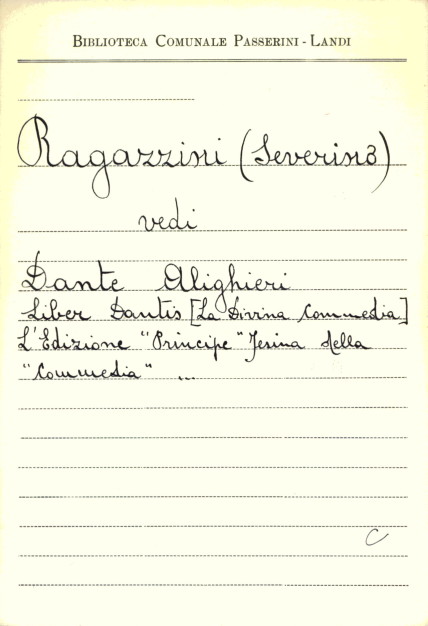 BIBLIOTECA COMUNALE PASSERINI - LANDI
Ragazzini (Severino)
vedi
Dante Alighieri
Liber Dantis [La Divina Commedia]
L'Edizione "Principe" Jesina della
"Commedia" ...
C